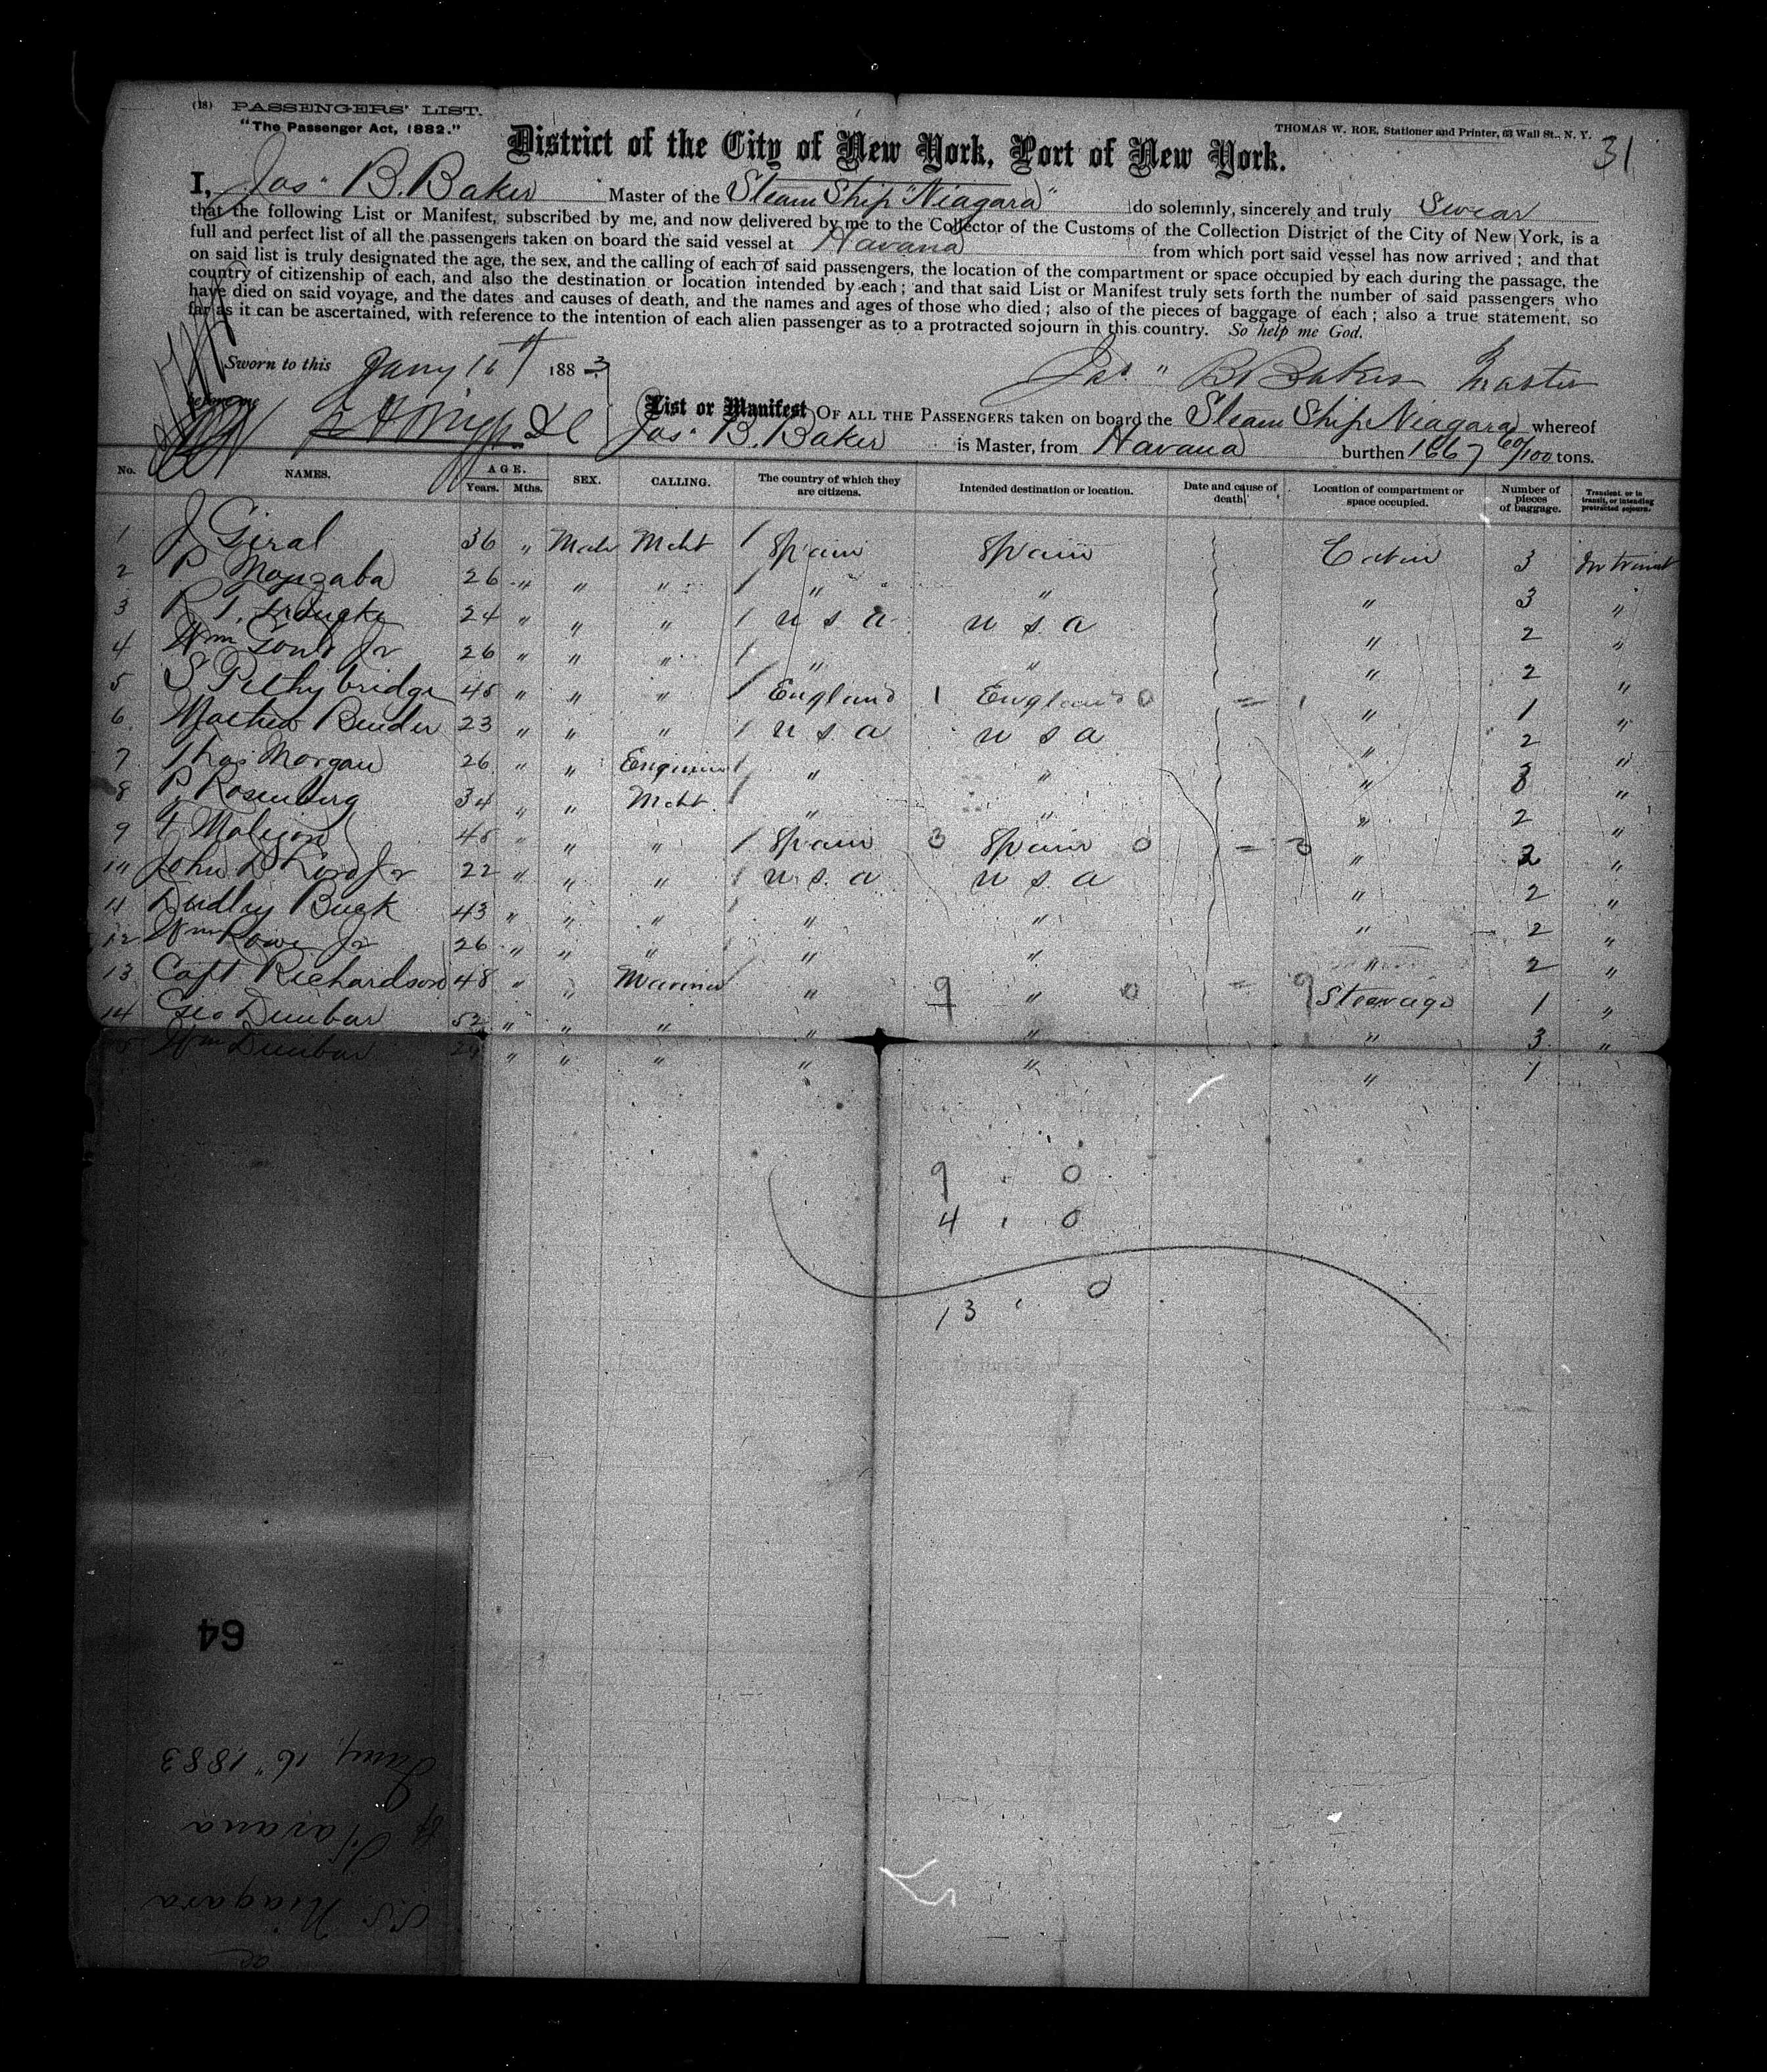 (18) PASSENGERS' LIST.
"The Passenger Act, 1882."
THOMAS W. ROE, Stationer and Printer, 63 Wall St., N. Y.
31
District of the City of New York, Port of New York.
I, Jas. B. Baker Master of the Steam Ship "Niagara" do solemnly, sincerely and truly Swear
that the following List or Manifest, subscribed by me, and now delivered by me to the Collector of the Customs of the Collection District of the City of New York, is a
full and perfect list of all the passengers taken on board the said vessel at Havana from which port said vessel has now arrived; and that
on said list is truly designated the age, the sex, and the calling of each of said passengers, the location of the compartment or space occupied by each during the passage, the
country of citizenship of each, and also the destination or location intended by each; and that said List or Manifest truly sets forth the number of said passengers who
have died on said voyage, and the dates and causes of death, and the names and ages of those who died; also of the pieces of baggage of each; also a true statement, so
far as it can be ascertained, with reference to the intention of each alien passenger as to a protracted sojourn in this country. So help me God.
Sworn to this Jany 16th 1883
Jas. B Baker Master
before me
List or Manifest OF ALL THE PASSENGERS taken on board the Steam Ship Niagara whereof
Jas. B. Baker is Master, from Havana burthen 1667 60/100 tons.
No. NAMES. AGE. Years. Mths. SEX. CALLING. The country of which they are citizens. Intended destination or location. Date and cause of death. Location of compartment or space occupied. Number of pieces of baggage. Transient, or in transit, or intending protracted sojourn.
1 J Giral 36 " Male Mcht / Spain Spain Cabin 3 In transit
2 P 26 " " " / " " " 3 "
3 R 24 " " " / U S A U S A " 2 "
4 Wm Jr 26 " " " / " " " 2 "
5 S Pethybridge 45 " " " / England 1 England 0 = 1 " 1 "
6 Bender 23 " " " / U S A U S A " 2 "
7 Thos Morgan 26 " " Engineer / " " " 3 "
8 P. Rosenberg 34 " " Mcht / " " " 2 "
9 45 " " " / Spain 3 Spain 0 = 3 " 2 "
10 John D Jr 22 " " " / U S A U S A " 2 "
11 Dudley Buck 43 " " " / " " " 2 "
12 Wm Rowe Jr 26 " " " " " " 2 "
13 Capt Richardson 48 " " Mariner / " 9 " 0 = 9 Steerage 1 "
14 Geo Dunbar 52 " " " " " " 3 "
15 Wm Dunbar " " " " " " 1
9 . 0
4 . 0
13 . 0
64
SS Niagara
Havana
Jany, 16" 1883